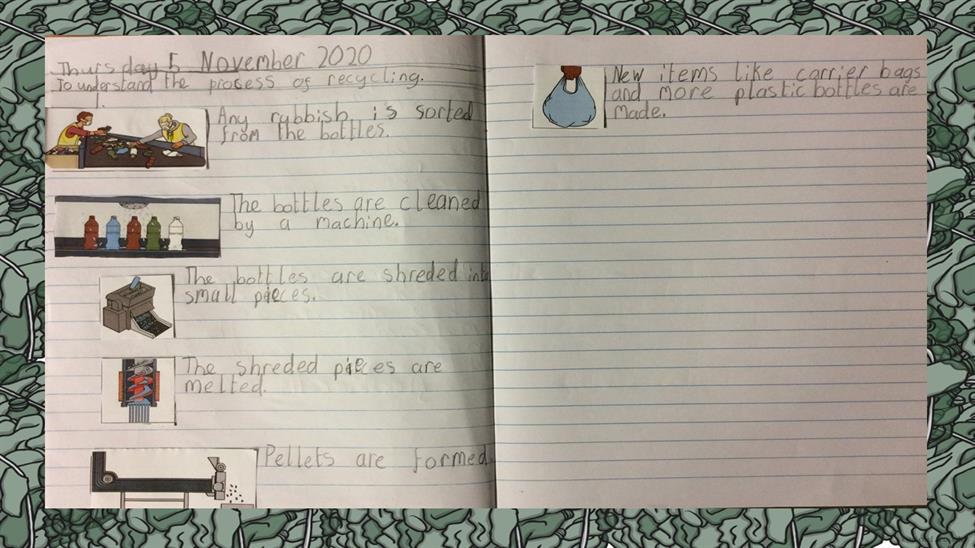 Thursday 5 November 2020
To understand the process of recycling.
Any rubbish is sorted
from the bottles.
The bottles are cleaned
by a machine.
The bottles are shreded into
small pieces.
The shreded pieces are
melted.
Pellets are formed.
New items like carrier bags
and more plastic bottles are
made.